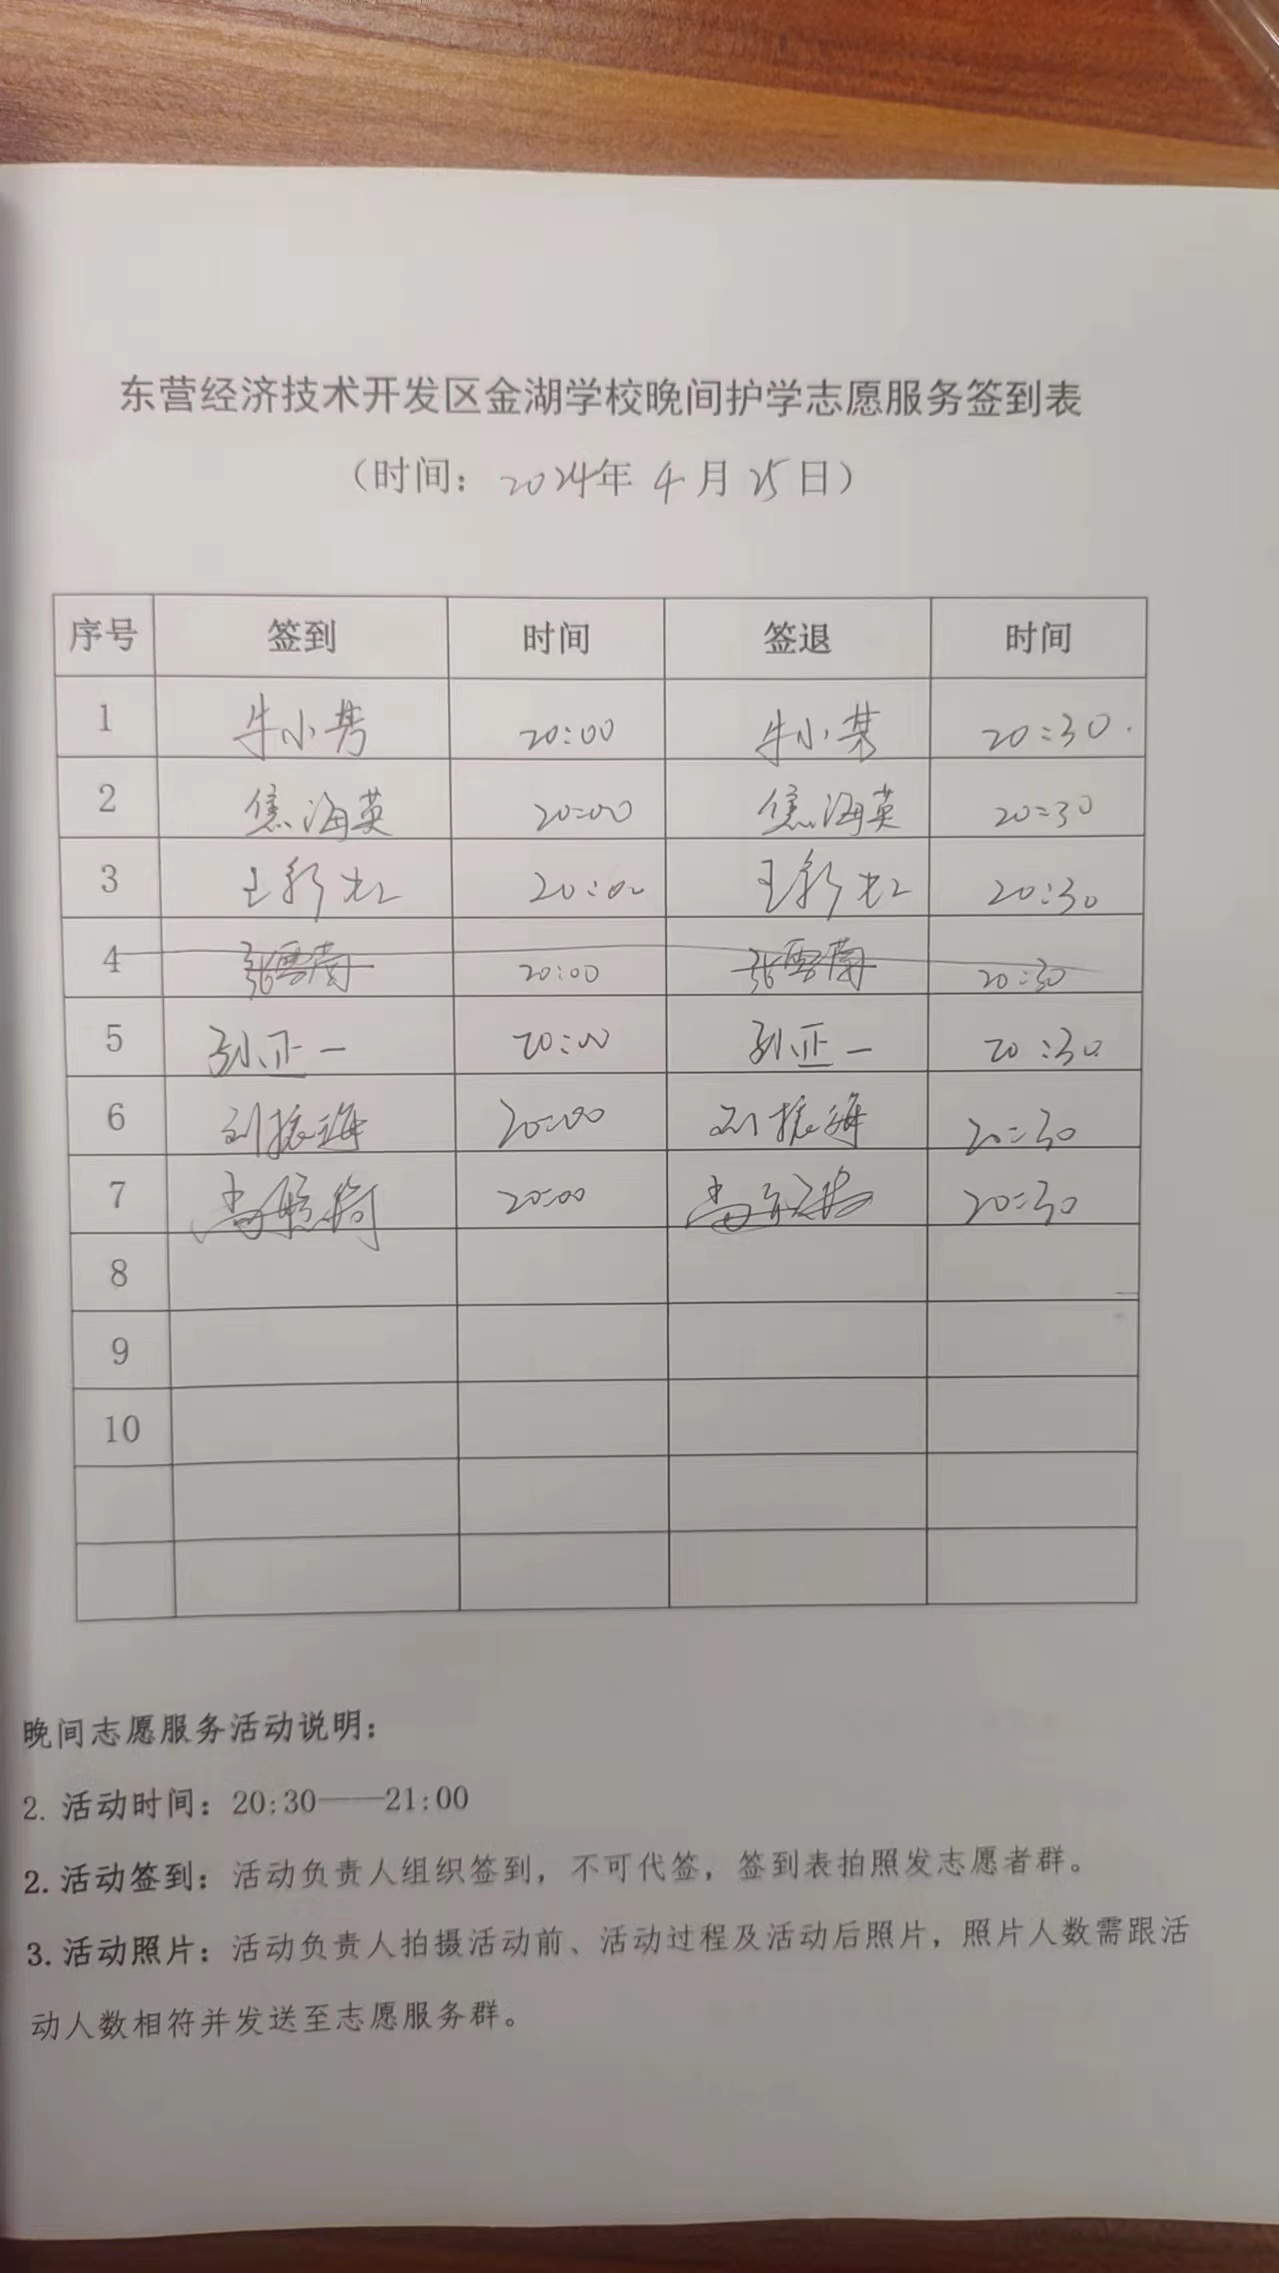 东营经济技术开发区金湖学校晚间护学志愿服务签到表
（时间：2024年 4 月 25 日）
序号 签到 时间 签退 时间
1 牛小 20:00 牛小 20:30.
2 焦海英 20:00 焦海英 20:30
3 王彩虹 20:00 王彩虹 20:30
4 张雪 20:00 张雪 20:30
5 孙正一 20:00 孙正一 20:30
6 刘振海 20:00 刘振海 20:30
7 20:00 20:30
8
9
10
晚间志愿服务活动说明：
2. 活动时间：20:30——21:00
2. 活动签到：活动负责人组织签到，不可代签，签到表拍照发志愿者群。
3. 活动照片：活动负责人拍摄活动前、活动过程及活动后照片，照片人数需跟活
动人数相符并发送至志愿服务群。